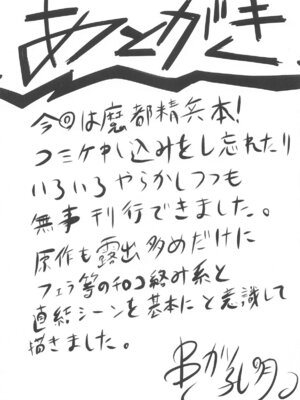 あとがき
今回は魔都精兵本！
コミケ申し込みをし忘れたり
いろいろやらかしつつも
無事刊行できました。
原作も露出多めだけに
フェラ等のチ○コ絡み系と
直結シーンを基本にと意識して
描きました。
串カツ孔明